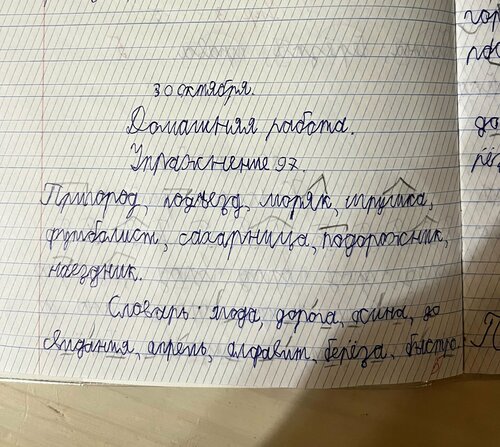 30 октября.
Домашняя работа.
Упражнение 97.
Пригород, подъезд, моряк, игрушка,
футболист, сахарница, подорожник,
наездник.
Словарь: ягода, дорога, осина, до
свидания, апрель, алфавит, берёза, быстро.